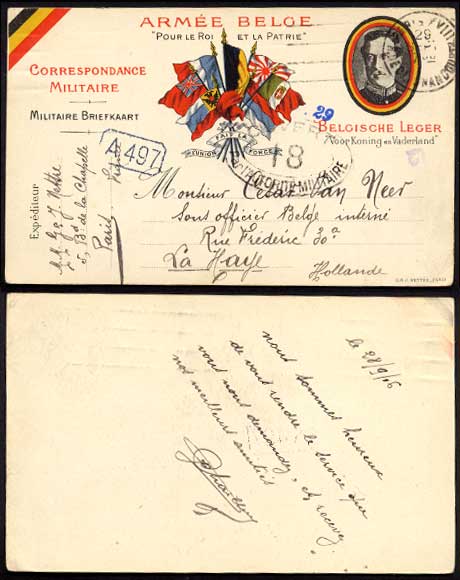 ARMÉE BELGE
"POUR LE ROI ET LA PATRIE"
CORRESPONDANCE
MILITAIRE
MILITAIRE BRIEFKAART
BELGISCHE LEGER
"Voor Koning en Vaderland"
29
A 497
18
MILITAIRE
L'UNION FAIT LA FORCE
Expéditeur
5, Bd de la Chapelle
Paris
Monsieur Cesar Van Neer
Sous officier Belge interné
Rue Frederic 30a
La Haye
Hollande
le 28/9/16
nous sommes heureux
de vous rendre le service que
vous nous demandez, et recevez
nos meilleurs amitiés